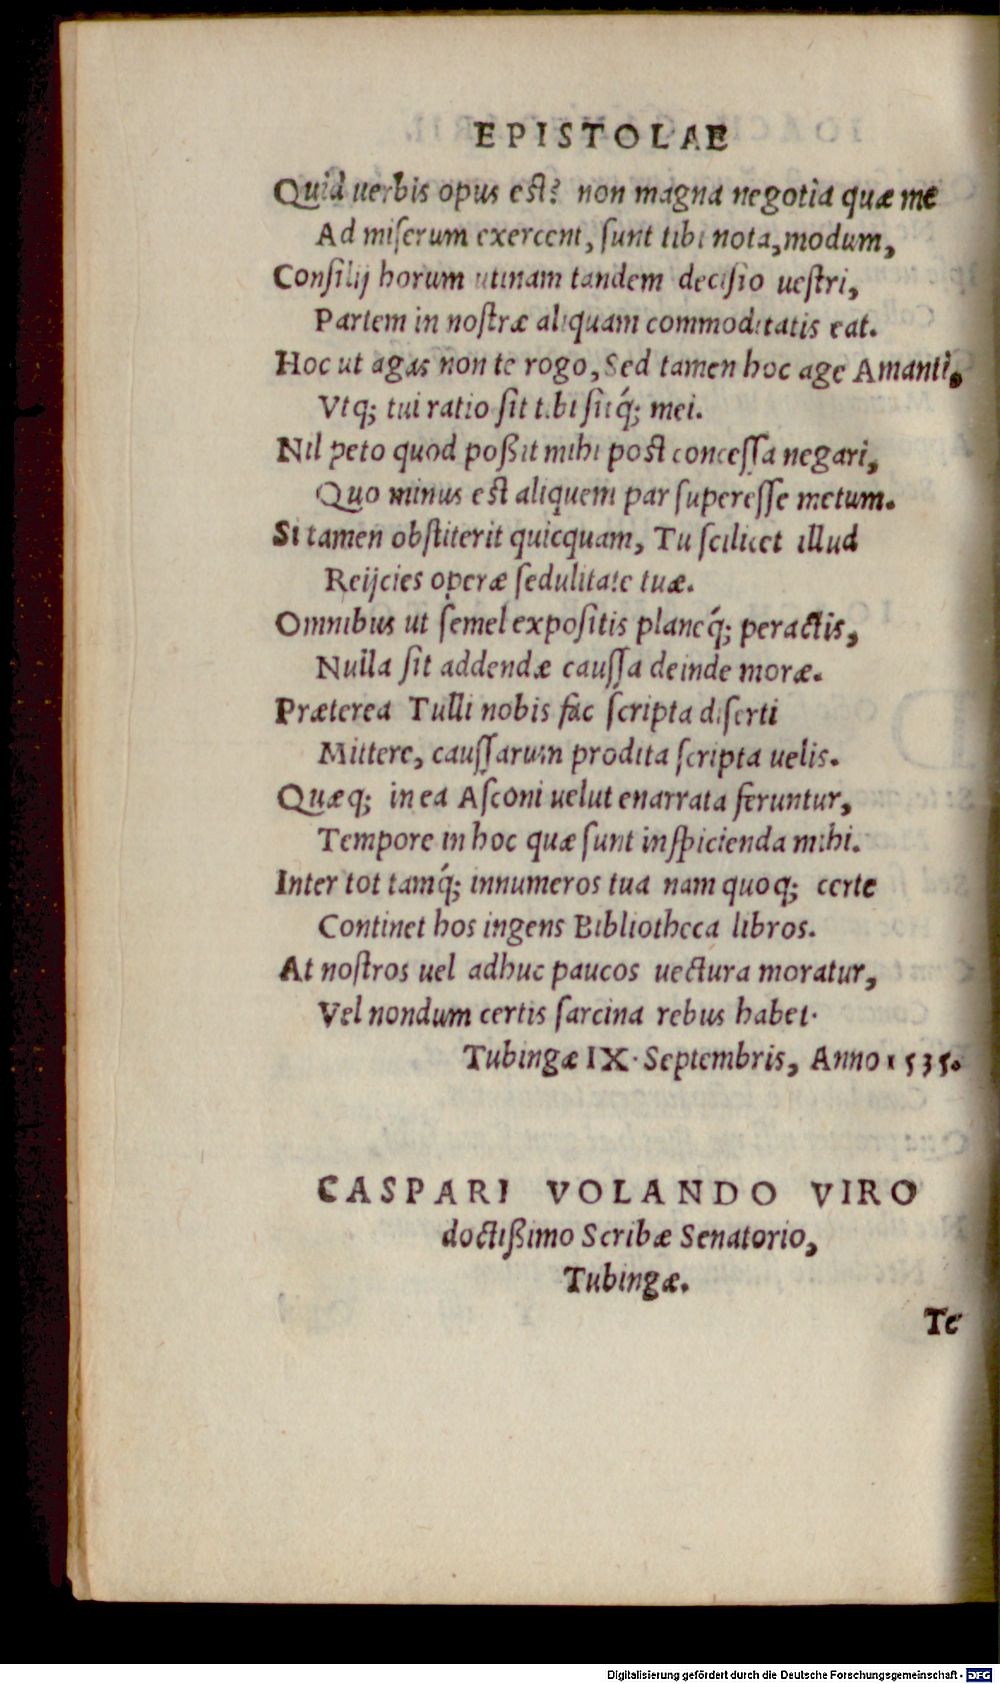 EPISTOLAE
Quid uerbis opus est? non magna negotia quæ me
Ad miſerum exercent, ſunt tibi nota, modum,
Conſilij horum utinam tandem deciſio ueſtri,
Partem in noſtræ aliquam commoditatis eat.
Hoc ut agas non te rogo, Sed tamen hoc age Amanti,
Vtq; tui ratio ſit tibi ſitq́; mei.
Nil peto quod poßit mihi post conceſſa negari,
Quo minus est aliquem par ſupereſſe metum.
Si tamen obſtiterit quicquam, Tu ſcilicet illud
Reijcies operæ ſedulitate tuæ.
Omnibus ut ſemel expoſitis planeq́; peractis,
Nulla ſit addendæ cauſſa deinde moræ.
Præterea Tulli nobis fac ſcripta diſerti
Mittere, cauſſarum prodita ſcripta uelis.
Quæq; in ea Aſconi uelut enarrata feruntur,
Tempore in hoc quæ ſunt inſpicienda mihi.
Inter tot tamq́; innumeros tua nam quoq; certe
Continet hos ingens Bibliotheca libros.
At noſtros uel adhuc paucos uectura moratur,
Vel nondum certis ſarcina rebus habet·
Tubingæ IX· Septembris, Anno 1535.
CASPARI VOLANDO VIRO
doctißimo Scribæ Senatorio,
Tubingæ.
Te
Digitalisierung gefördert durch die Deutsche Forschungsgemeinschaft - DFG